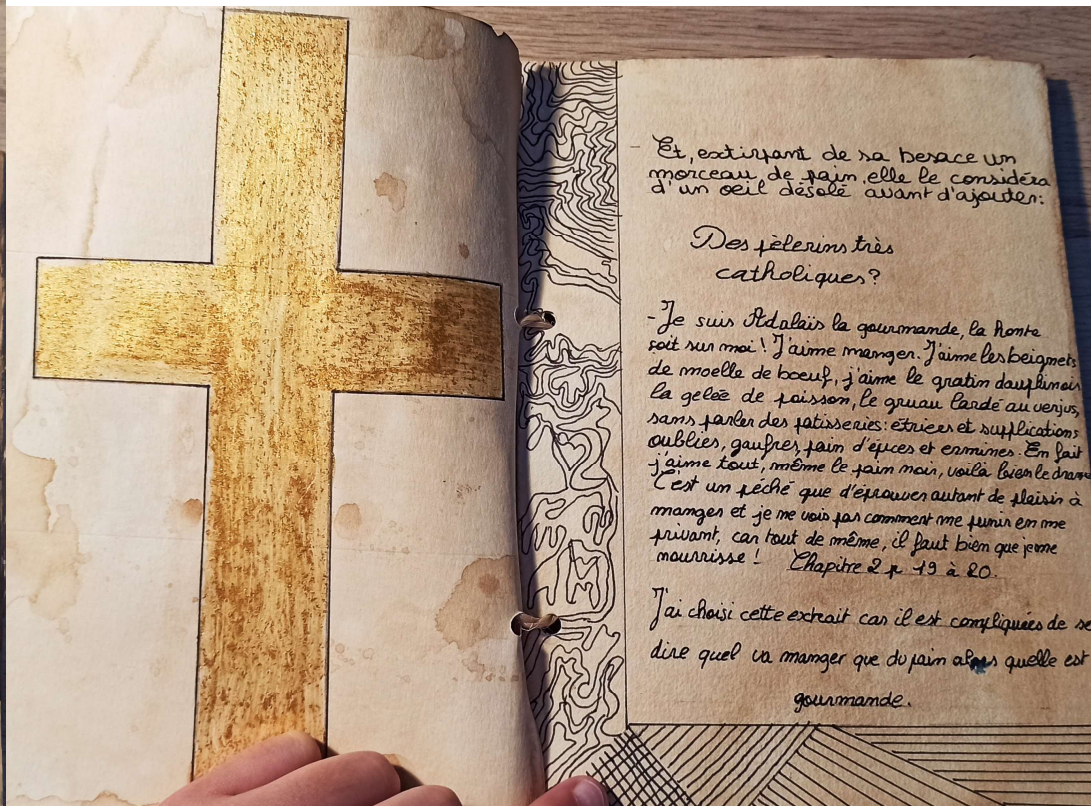 Et, extirpant de sa besace un
morceau de pain, elle le considéra
d'un oeil désolé avant d'ajouter:
Des pèlerins très
catholiques?
-Je suis Adalaïs la gourmande, la honte
soit sur moi! J'aime manger. J'aime les beignets
de moelle de boeuf, j'aime le gratin dauphinois
la gelée de poisson, le gruau lardé au verjus,
sans parler des patisseries: étriers et supplications
oublies, gaufres, pain d'épices et ermines. En fait
j'aime tout, même le pain noir, voilà bien le drame
C'est un péché que d'éprouver autant de plaisir à
manger et je ne vois pas comment me punir en me
privant, car tout de même, il faut bien que je me
nourrisse! Chapitre 2 p 19 à 20.
J'ai choisi cette extrait car il est compliquées de se
dire quel va manger que du pain alors quelle est
gourmande.